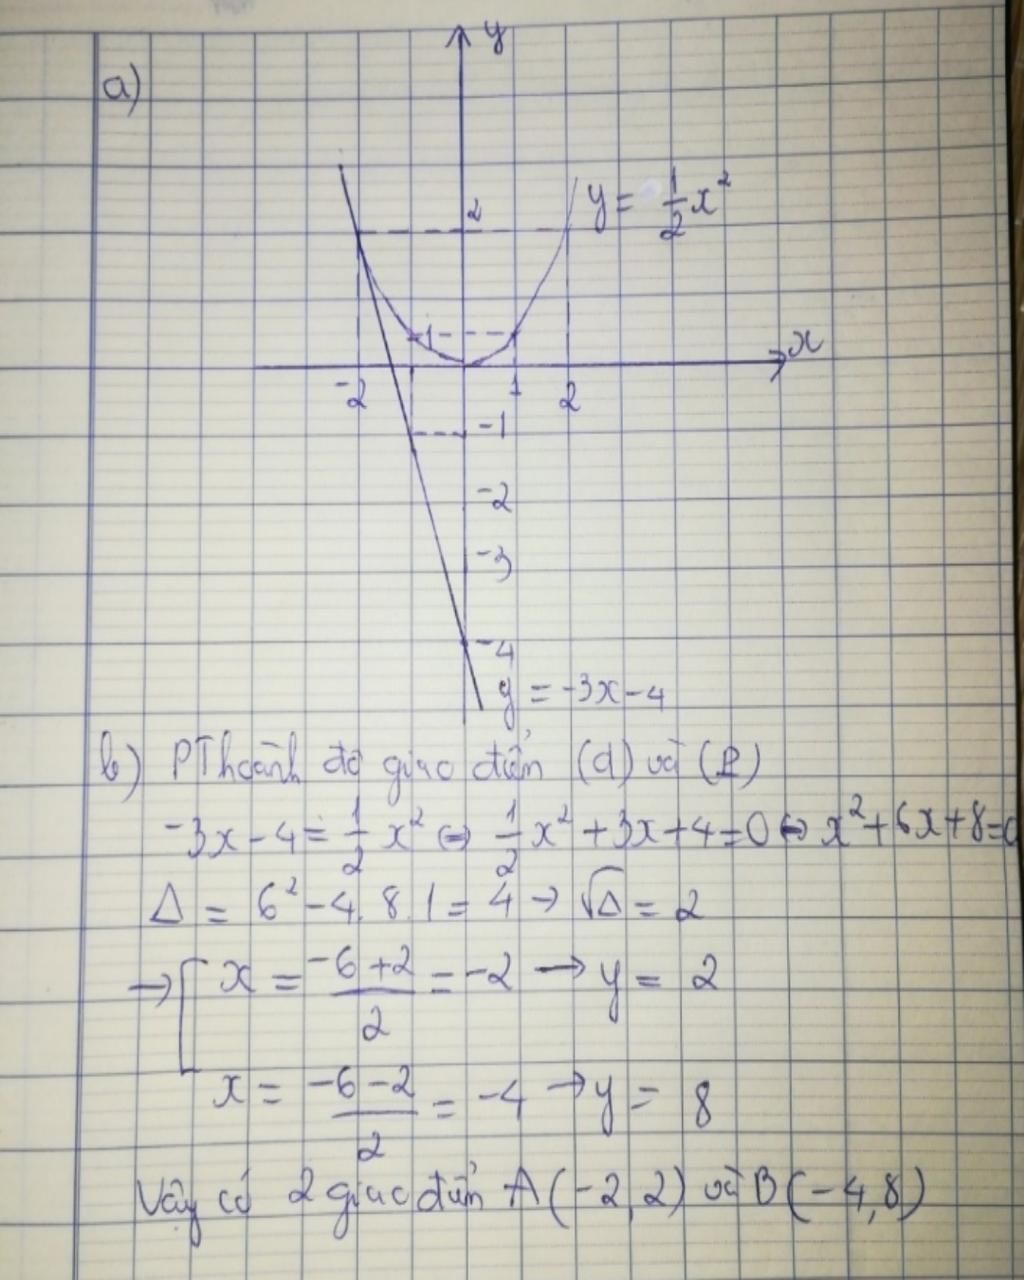 a)
y
y = 1/2 x²
2
1
x
-2 1 2
-1
-2
-3
-4
y = -3x-4
b) PT hoành độ giao điểm (d) và (P)
-3x-4 = 1/2 x² ⇔ 1/2 x² + 3x + 4 = 0 ⇔ x² + 6x + 8 = 0
Δ = 6² - 4.8.1 = 4 → √Δ = 2
→ [ x = (-6+2)/2 = -2 → y = 2
x = (-6-2)/2 = -4 → y = 8
Vậy có 2 giao điểm A(-2,2) và B(-4,8)